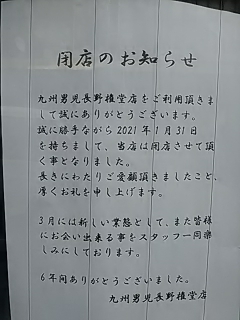 閉店のお知らせ
九州男児長野権堂店をご利用頂きま
して誠にありがとうございます。
誠に勝手ながら2021年1月31日
を持ちまして、当店は閉店させて頂
く事となりました。
長きにわたりご愛顧頂きましたこと、
厚くお礼を申し上げます。
3月には新しい業態として、また皆様
にお会い出来る事をスタッフ一同楽
しみにしております。
6年間ありがとうございました。
九州男児長野権堂店